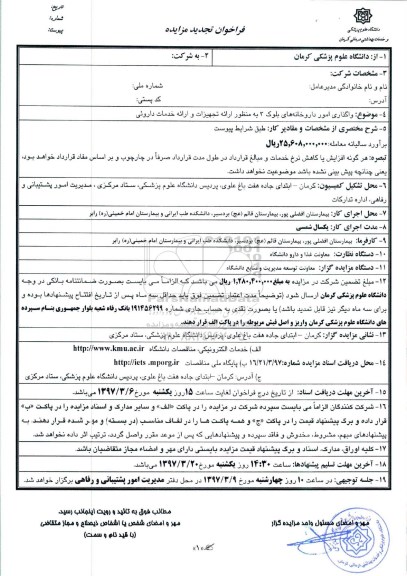 دانشگاه علوم پزشکی
و خدمات بهداشتی درمانی کرمان
تاریخ:
شماره:
پیوست:
فراخوان تجدید مزایده
۱- از: دانشگاه علوم پزشکی کرمان
۲- به شرکت:
۳- مشخصات شرکت:
نام و نام خانوادگی مدیرعامل: شماره ملی:
آدرس: کد پستی:
۴- موضوع: واگذاری امور داروخانه‌های بلوک ۳ به منظور ارائه تجهیزات و ارائه خدمات داروئی
۵- شرح مختصری از مشخصات و مقادیر کار: طبق شرایط پیوست
برآورد سالیانه معامله: ۲۵,۶۰۸,۰۰۰,۰۰۰ریال
تبصره: هر گونه افزایش یا کاهش نرخ خدمات و مبالغ قرارداد در طول مدت قرارداد صرفاً در چارچوب و بر اساس مفاد قرارداد خواهد بود،
یعنی چنانچه پیش بینی نشده باشد موضوعیت نخواهد داشت.
۶- محل تشکیل کمیسیون: کرمان – ابتدای جاده هفت باغ علوی، پردیس دانشگاه علوم پزشکی، ستاد مرکزی ، مدیریت امور پشتیبانی و
رفاهی، اداره تدارکات
۷- محل اجرای کار: بیمارستان افضلی پور، بیمارستان قائم (عج) بردسیر، دانشکده طب ایرانی و بیمارستان امام خمینی(ره) رابر
۸- مدت اجرای کار: یکسال شمسی
۹- کارفرما: بیمارستان افضلی پور، بیمارستان قائم (عج) بردسیر، دانشکده طب ایرانی و بیمارستان امام خمینی(ره) رابر
۱۰- دستگاه نظارت: معاونت غذا و دارو دانشگاه
۱۱- دستگاه مزایده گزار: معاونت توسعه مدیریت و منابع دانشگاه
۱۲- مبلغ تضمین شرکت در مزایده به مبلغ ۱,۲۸۰,۴۰۰,۰۰۰ ریال می باشد که الزاماً می بایست بصورت ضمانتنامه بانکی در وجه
دانشگاه علوم پزشکی کرمان ارسال شود (توضیحاً مدت اعتبار تضمین فوق باید حداقل سه ماه پس از تاریخ افتتاح پیشنهادها بوده و
برای سه ماه دیگر نیز قابل تمدید باشد) یا بصورت نقدی به حساب جاری شماره ۱۹۱۴۵۶۲۹۹ بانک رفاه شعبه بلوار جمهوری بنام سپرده
های دانشگاه علوم پزشکی کرمان واریز و اصل فیش مربوطه را در پاکت الف قرار دهند.
۱۳- نشانی مزایده گزار: کرمان – ابتدای جاده هفت باغ علوی، پردیس دانشگاه علوم پزشکی، ستاد مرکزی
الف) خدمات الکترونیکی، مناقصات دانشگاه http://www.kmu.ac.ir
۱۴- محل دریافت اسناد مزایده شماره: ۱۶/۲۱/۳/۹۷ ب) پایگاه ملی مناقصات http://iets .mporg.ir
ج) آدرس: کرمان –ابتدای جاده هفت باغ علوی، پردیس دانشگاه علوم پزشکی، ستاد مرکزی
۱۵- آخرین مهلت دریافت اسناد: از تاریخ درج فراخوان لغایت ساعت ۱۵ روز یکشنبه مورخ ۱۳۹۷/۳/۶ می‌باشد.
۱۶- شرکت کنندگان الزاماً می بایست سپرده شرکت در مزایده را در پاکت «الف» و سایر مدارک و اسناد مزایده را در پاکت «ب»
قرار داده و برگ پیشنهاد قیمت را در پاکت «ج» و همه پاکت ها را در لفاف مناسب (در بسته) و مهر شده قرار دهند. به
پیشنهادهای مبهم، مشروط، مخدوش و فاقد سپرده و پیشنهادهایی که پس از موعد مقرر واصل گردد، ترتیب اثر داده نخواهد شد.
۱۷- کلیه اوراق، مدارک، اسناد و برگ پیشنهاد قیمت مزایده بایستی دارای مهر و امضاء مجاز متقاضیان باشد.
۱۸- آخرین مهلت تسلیم پیشنهادها: ساعت ۱۴:۳۰ روز یکشنبه مورخ ۱۳۹۷/۳/۲۰ می‌باشد.
۱۹- جلسه توجیهی: در ساعت ۱۰ روز چهارشنبه مورخ ۱۳۹۷/۳/۹ در محل دفتر مدیریت امور پشتیبانی و رفاهی برگزار خواهد شد.
مهر و امضای مسئول واحد مزایده گزار
مطالب فوق به تائید و رویت اینجانب رسید.
مهر و امضای شخص یا اشخاص ذیصلاح و مجاز متقاضی
(با قید نام و سمت)